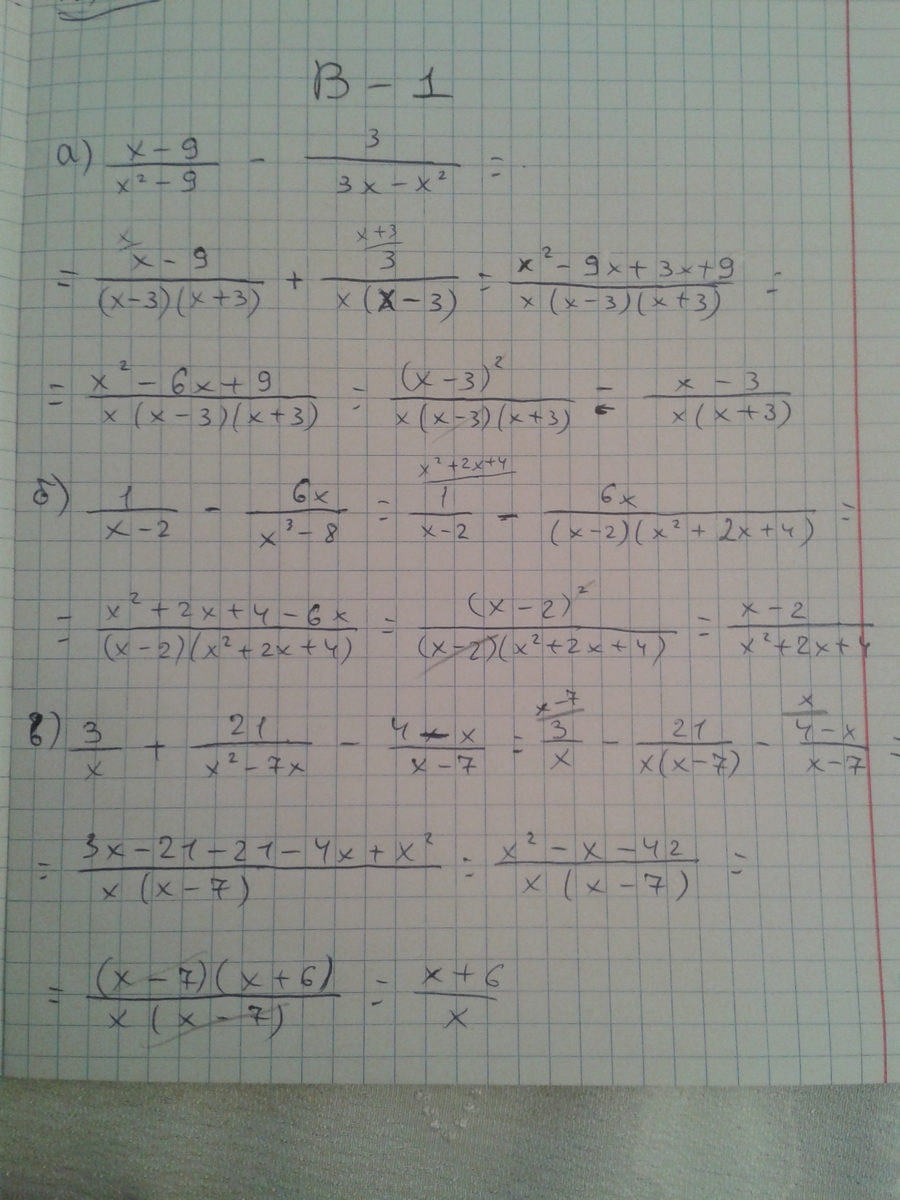 В - 1
а) (x - 9)/(x² - 9) - 3/(3x - x²) =
= (x - 9)/((x-3)(x+3)) [x] + 3/(x(x - 3)) [x+3] = (x² - 9x + 3x + 9)/(x(x-3)(x+3)) =
= (x² - 6x + 9)/(x(x - 3)(x+3)) = (x - 3)²/(x(x-3)(x+3)) = (x - 3)/(x(x+3))
б) 1/(x - 2) - 6x/(x³ - 8) = 1/(x - 2) [x² + 2x + 4] - 6x/((x-2)(x² + 2x + 4)) =
= (x² + 2x + 4 - 6x)/((x - 2)(x² + 2x + 4)) = (x - 2)²/((x-2)(x² + 2x + 4)) = (x - 2)/(x² + 2x + 4)
в) 3/x + 21/(x² - 7x) - (4 - x)/(x - 7) = 3/x [x-7] - 21/(x(x-7)) - (4 - x)/(x - 7) [x] =
= (3x - 21 - 21 - 4x + x²)/(x(x - 7)) = (x² - x - 42)/(x(x - 7)) =
= ((x - 7)(x + 6))/(x(x - 7)) = (x + 6)/x